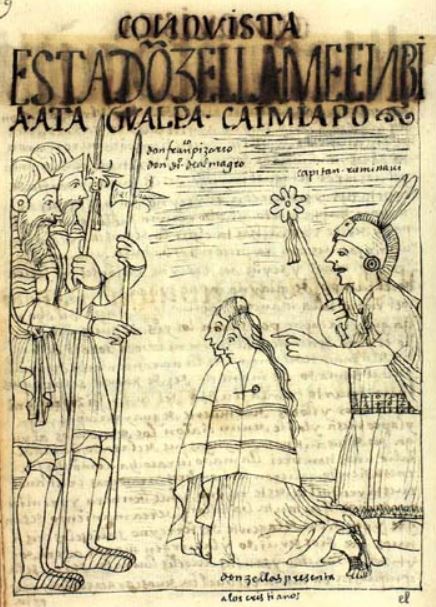 CONQVISTA
ESTADÕZELLAMEENBI
A·ATAGVALPA·CAIMIAPO
don franco pizarro
don do de almagro
capitan ruminaui
donzellas presenta
a los cristianos
el